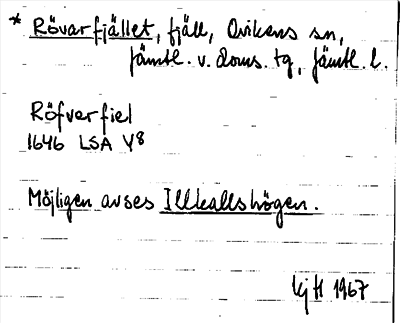 * Rövarfjället, fjäll, Ovikens sn,
Jämtl. v. doms. tg, Jämtl. l.
Röfverfiel
1646 LSA Y8
Möjligen avses Illkallshögen.
1967